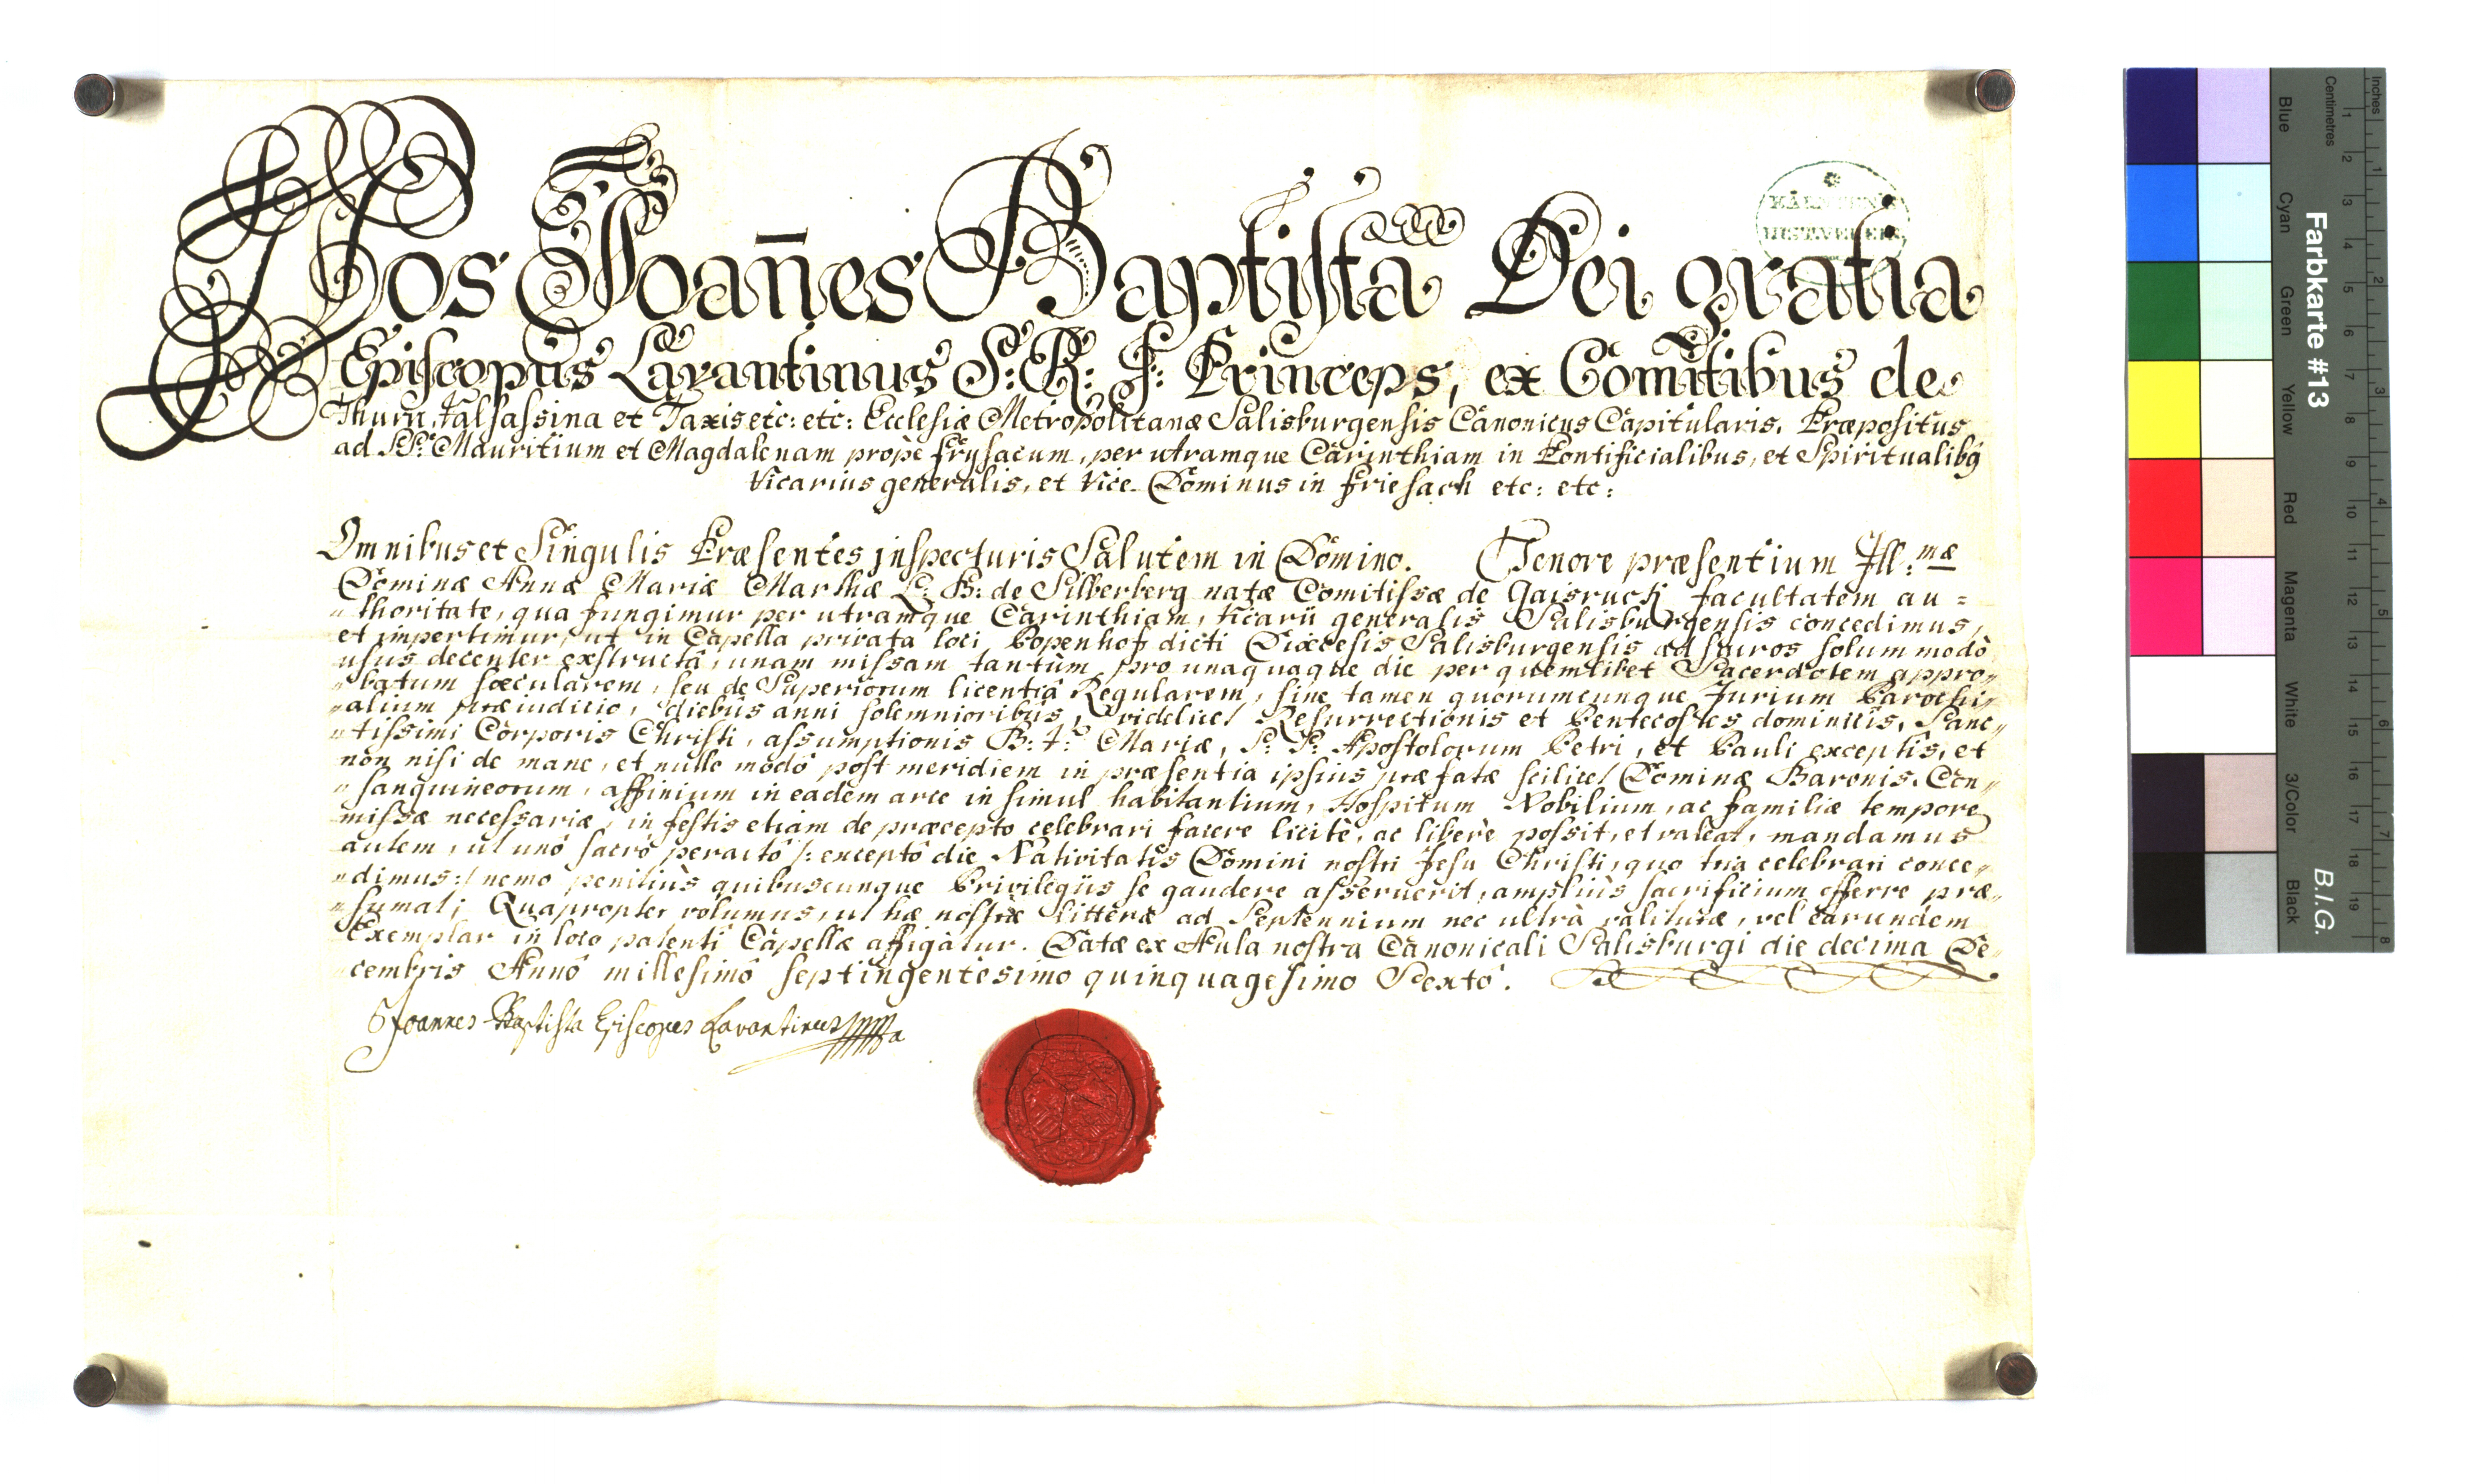 Nos Joañes Baptista Dei gratia
Episcopus Lavantinus S: R: I: Princeps, ex Comitibus de
Thurn, Valsassina et Taxis etc: etc: Ecclesiæ Metropolitanæ Salisburgensis Canonicus Capitularis, Præpositus
ad SS: Mauritium et Magdalenam propè Frysacum, per utramque Carinthiam in Pontificialibus, et Spiritualibq
Vicarius generalis, et Vice-Dominus in Friesach etc: etc:
Omnibus et Singulis Præsentes inspecturis Salutem in Domino. Tenore præsentium Ill:mæ
Dominæ Annæ Mariæ Marthæ L: B: de Silberberg natæ Comitissæ de Gaisruck facultatem au=
"thoritate, qua fungimur per utramque Carinthiam, Vicarii generalis Salisburgensis concedimus,
et impertimur, ut in Capella privata loci Popenhof dicti Diæcesis Salisburgensis ad suos solummodò
usus decenter exstructâ, unam missam tantùm pro unaquaque die per quemlibet Sacerdotem appro"
"batum sæcularem, seu de Superiorum licentiâ Regularem, sine tamen quorumcunque Jurium Parochi"
"alium præiuditio, diebus anni solemnioribus, videlicet Resurrectionis et Pentecostes dominicis, Sanc"
"tissimi Corporis Christi, assumptionis B: V: Mariæ, S: S: Apostolorum Petri, et Pauli exceptis, et
non nisi de mane, et nullo modo post meridiem in præsentia ipsius præfatæ scilicet Dominæ Baronis, Con"
"sanguineorum, affinium in eadem arce insimul habitantium, Hospitum Nobilium, ac familiæ tempore
missæ necessariæ, in festis etiam de præcepto celebrari facere licitè, ac liberè possit, et valeat, mandamus
autem, ut unô sacrô peractô /: exceptô die Nativitatis Domini nostri Jesu Christi, quo tria celebrari conce"
"dimus :/ nemo penitiùs quibuscunque Privilegiis se gaudere asseruerit, ampliùs sacrificium offerre præ"
"sumat; Quapropter volumus, ut hæ nostræ litteræ ad Septennium nec ultrà valituræ, vel earundem
Exemplar in loco patenti Capellæ affigatur. Datæ ex Aula nostra Canonicali Salisburgi die decima De"
"cembris Annô millesimô septingentesimo quinquagesimo Sexto.
Joannes Baptista Episcopus Lavantinus
Farbkarte #13
B.I.G.
Inches
Centimetres
Blue
Cyan
Green
Yellow
Red
Magenta
White
3/Color
Black
1 2 3 4 5 6 7 8 9 10 11 12 13 14 15 16 17 18 19
1 2 3 4 5 6 7 8